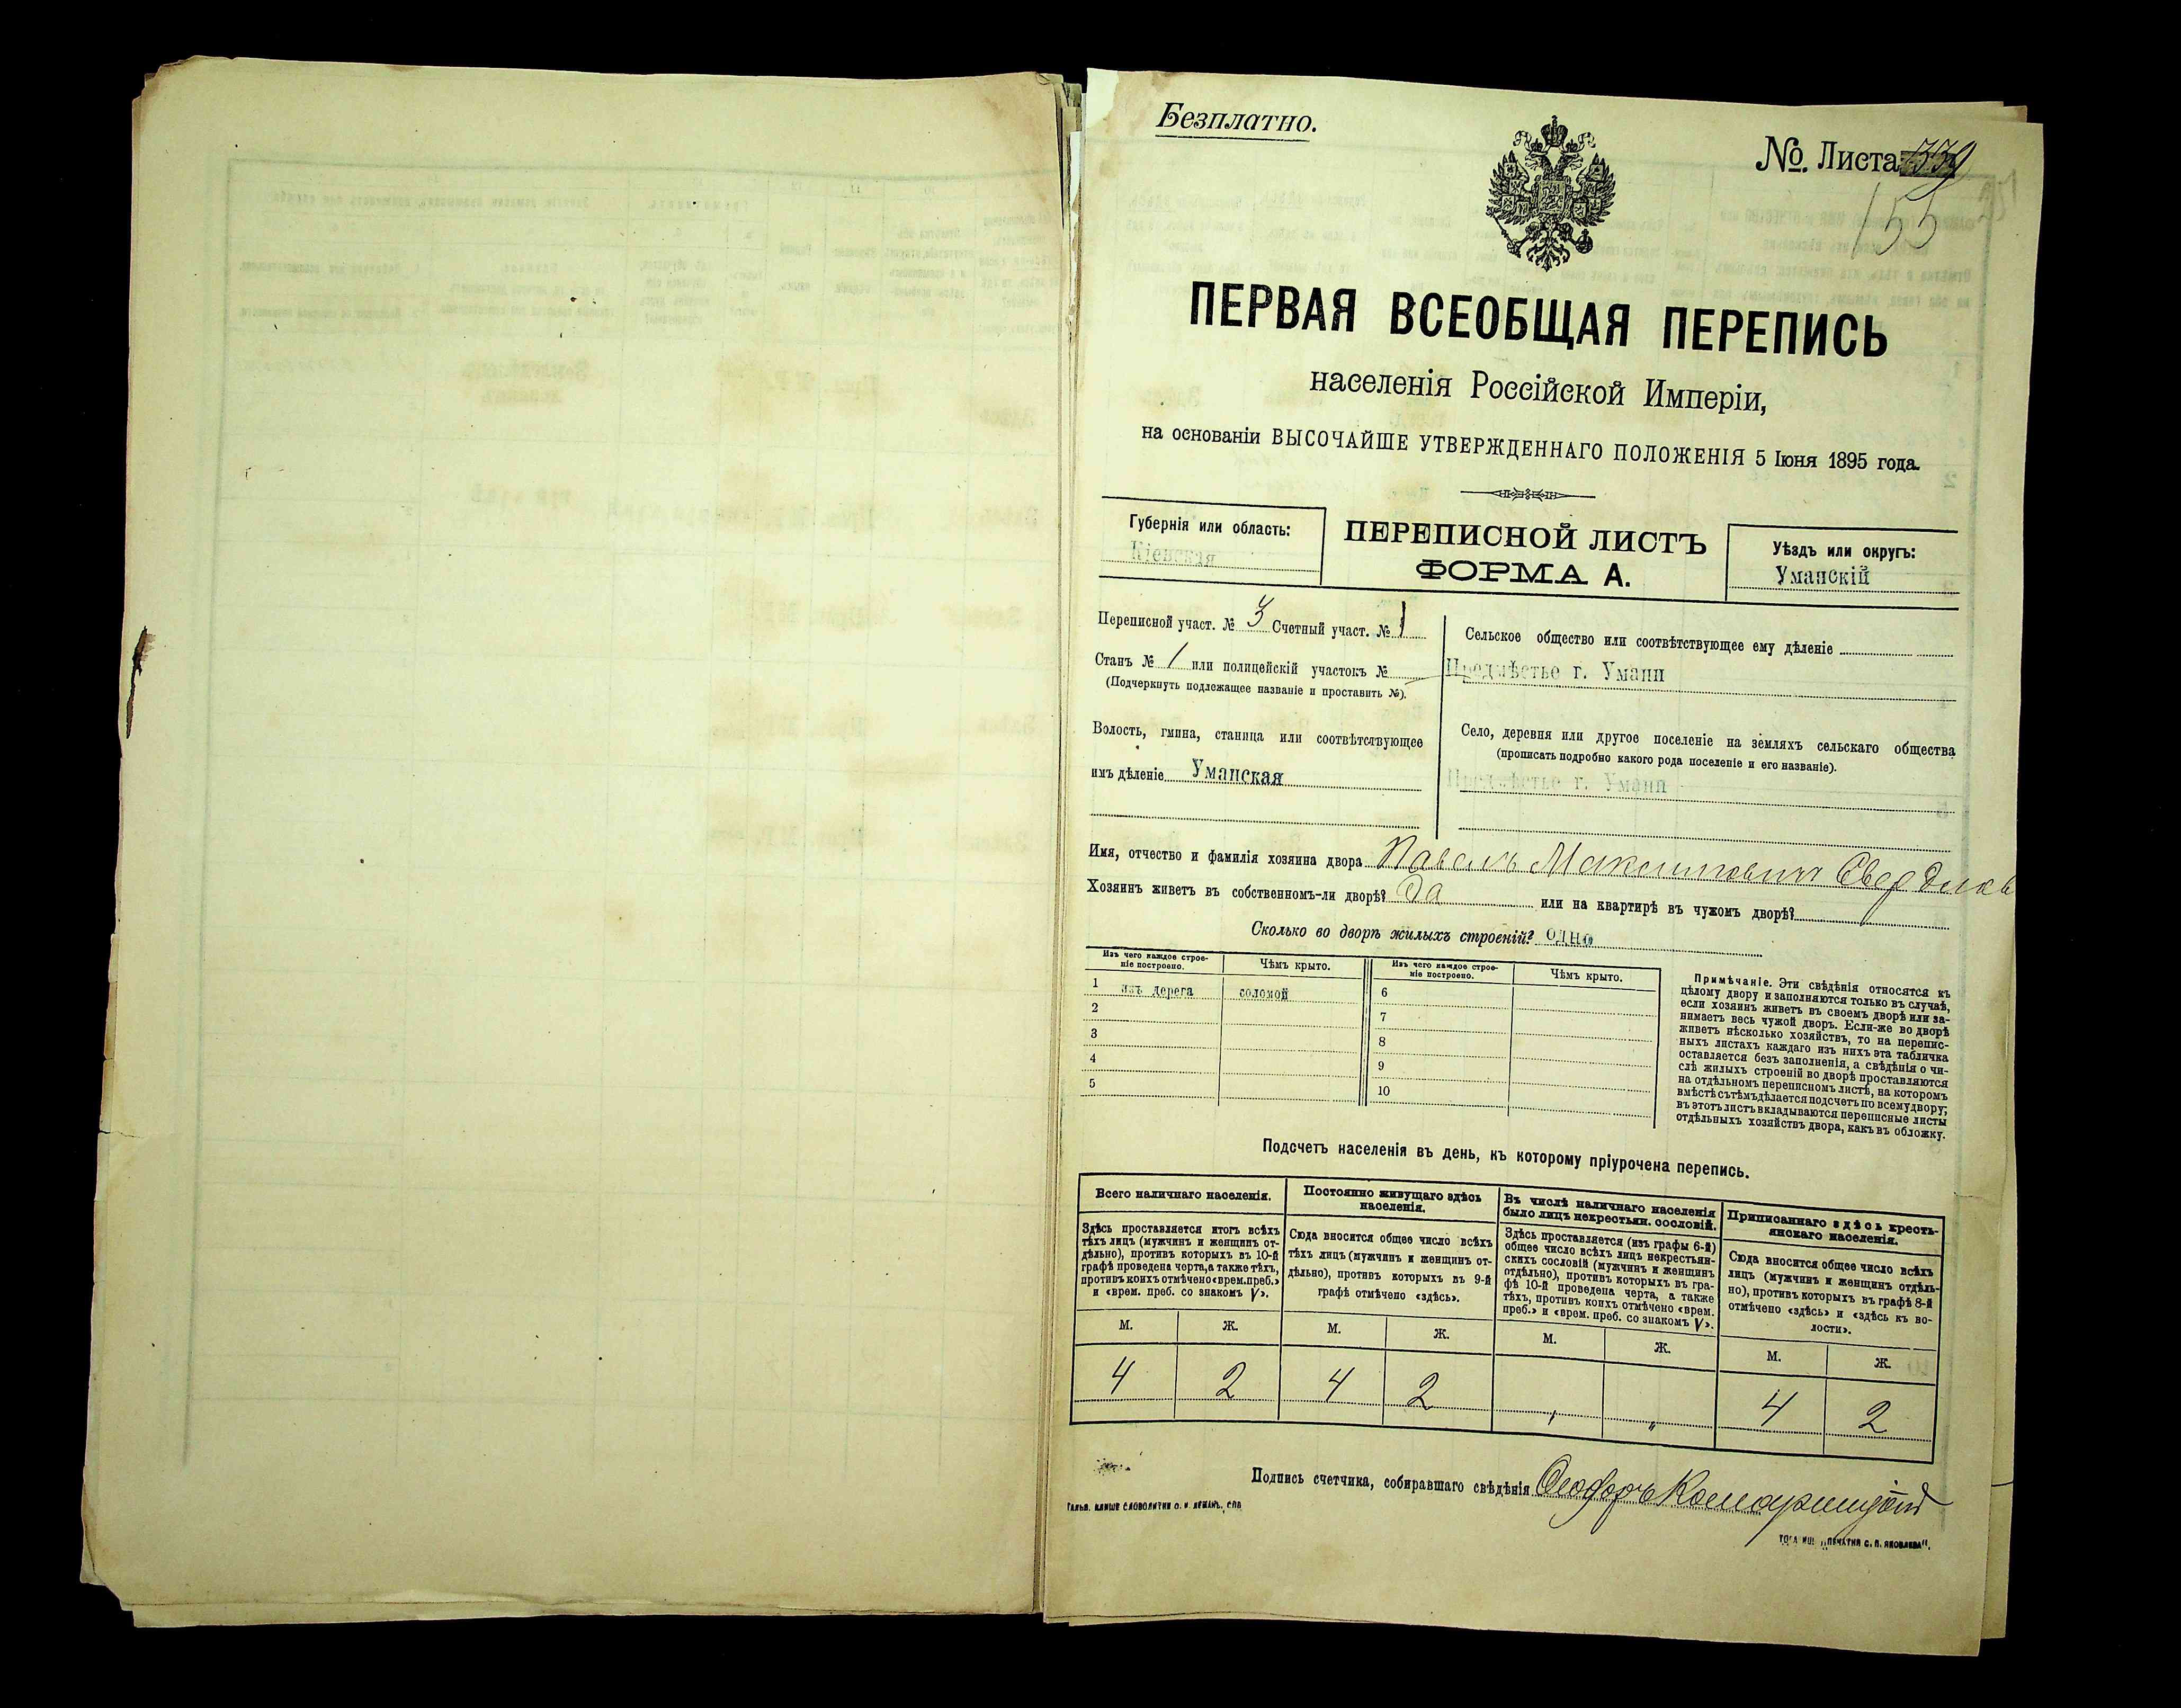 Безплатно.
№. Листа 339
155
ПЕРВАЯ ВСЕОБЩАЯ ПЕРЕПИСЬ
населенія Россійской Имперіи,
на основаніи ВЫСОЧАЙШЕ УТВЕРЖДЕННАГО ПОЛОЖЕНІЯ 5 Іюня 1895 года.
Губернія или область:
Кіевская
ПЕРЕПИСНОЙ ЛИСТЪ
ФОРМА А.
Уѣздъ или округъ:
Уманскій
Переписной участ. № 3 Счетный участ. № 1
Станъ № 1 или полицейскій участокъ №
(Подчеркнуть подлежащее названіе и проставить №).
Волость, гмина, станица или соотвѣтствующее
имъ дѣленіе Уманская
Сельское общество или соотвѣтствующее ему дѣленіе
Предмѣстье г. Умани
Село, деревня или другое поселеніе на земляхъ сельскаго общества
(прописать подробно какого рода поселеніе и его названіе).
Предмѣстье г. Умани
Имя, отчество и фамилія хозяина двора Павелъ Максимовичъ Свердликъ
Хозяинъ живетъ въ собственномъ-ли дворѣ? Да или на квартирѣ въ чужомъ дворѣ?
Сколько во дворѣ жилыхъ строеній? одно
Изъ чего каждое строе-
ніе построено.
Чѣмъ крыто.
Изъ чего каждое строе-
ніе построено.
Чѣмъ крыто.
1 изъ дерева соломой 6
2 7
3 8
4 9
5 10
Примѣчаніе. Эти свѣдѣнія относятся къ
цѣлому двору и заполняются только въ случаѣ,
если хозяинъ живетъ въ своемъ дворѣ или за-
нимаетъ весь чужой дворъ. Если-же во дворѣ
живетъ нѣсколько хозяйствъ, то на перепис-
ныхъ листахъ каждаго изъ нихъ эта табличка
оставляется безъ заполненія, а свѣдѣнія о чи-
слѣ жилыхъ строеній во дворѣ проставляются
на отдѣльномъ переписномъ листѣ, на которомъ
вмѣстѣ съ тѣмъ дѣлается подсчетъ по всему двору;
въ этотъ листъ вкладываются переписные листы
отдѣльныхъ хозяйствъ двора, какъ въ обложку.
Подсчетъ населенія въ день, къ которому пріурочена перепись.
Всего наличнаго населенія.
Здѣсь проставляется итогъ всѣхъ
тѣхъ лицъ (мужчинъ и женщинъ от-
дѣльно), противъ которыхъ въ 10-й
графѣ проведена черта, а также тѣхъ,
противъ коихъ отмѣчено «врем. преб.»
и «врем. преб. со знакомъ V».
Постоянно живущаго здѣсь
населенія.
Сюда вносится общее число всѣхъ
тѣхъ лицъ (мужчинъ и женщинъ от-
дѣльно), противъ которыхъ въ 9-й
графѣ отмѣчено «здѣсь».
Въ числѣ наличнаго населенія
было лицъ некрестьян. сословій.
Здѣсь проставляется (изъ графы 6-й)
общее число всѣхъ лицъ некрестьян-
скихъ сословій (мужчинъ и женщинъ
отдѣльно), противъ которыхъ въ гра-
фѣ 10-й проведена черта, а также
тѣхъ, противъ коихъ отмѣчено «врем.
преб.» и «врем. преб. со знакомъ V».
Приписаннаго здѣсь кресть-
янскаго населенія.
Сюда вносится общее число всѣхъ
лицъ (мужчинъ и женщинъ отдѣль-
но), противъ которыхъ въ графѣ 8-й
отмѣчено «здѣсь» и «здѣсь къ во-
лости».
М. Ж. М. Ж. М. Ж. М. Ж.
4 2 4 2 " " 4 2
Подпись счетчика, собиравшаго свѣдѣнія Ѳеодоръ Комарницкій